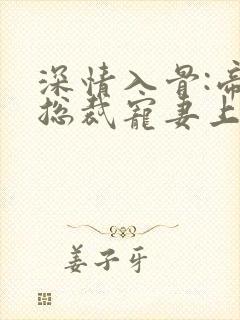 深情入骨:帝
总裁宠妻上
姜子牙